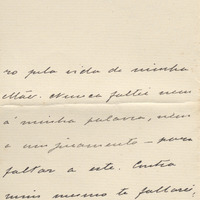 ro pela vida de minha
Mãe. Nunca faltei nem
á minha palavra, nem
a um juramento — para
faltar a este. Contra
mim mesmo te faltarei,